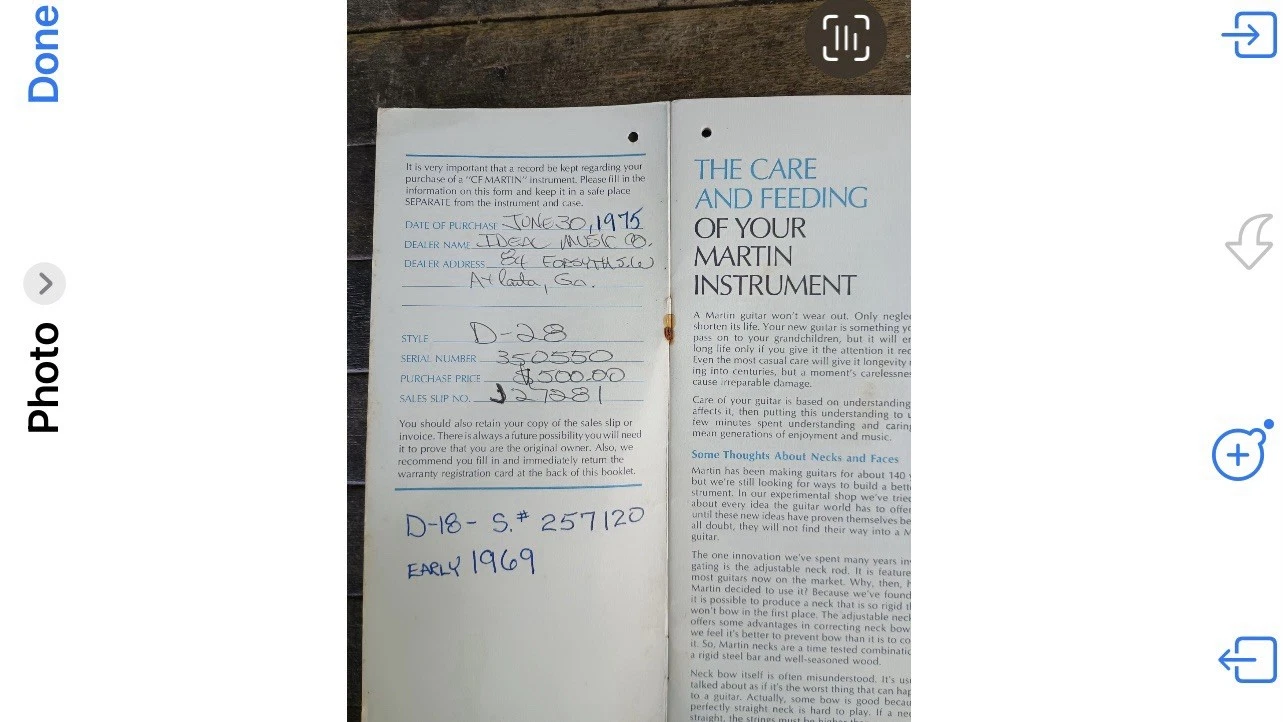 Done
Photo
It is very important that a record be kept regarding your
purchase of a "CF MARTIN" instrument. Please fill in the
information on this form and keep it in a safe place
SEPARATE from the instrument and case.
DATE OF PURCHASE JUNE 30, 1975
DEALER NAME IDEAL MUSIC CO.
DEALER ADDRESS 84 FORSYTH S.W
Atlanta, Ga.
STYLE D-28
SERIAL NUMBER 350550
PURCHASE PRICE $500.00
SALES SLIP NO. J27281
You should also retain your copy of the sales slip or
invoice. There is always a future possibility you will need
it to prove that you are the original owner. Also, we
recommend you fill in and immediately return the
warranty registration card at the back of this booklet.
D-18 - S.# 257120
EARLY 1969
THE CARE
AND FEEDING
OF YOUR
MARTIN
INSTRUMENT
A Martin guitar won't wear out. Only negle
shorten its life. Your new guitar is something y
pass on to your grandchildren, but it will e
long life only if you give it the attention it re
Even the most casual care will give it longevity
ing into centuries, but a moment's carelessne
cause irreparable damage.
Care of your guitar is based on understanding
affects it, then putting this understanding to u
few minutes spent understanding and caring
mean generations of enjoyment and music.
Some Thoughts About Necks and Faces
Martin has been making guitars for about 140
but we're still looking for ways to build a bett
strument. In our experimental shop we've trie
about every idea the guitar world has to offe
until these new ideas have proven themselves be
all doubt, they will not find their way into a M
guitar.
The one innovation we've spent many years in
gating is the adjustable neck rod. It is feature
most guitars now on the market. Why, then, h
Martin decided to use it? Because we've found
it is possible to produce a neck that is so rigid t
won't bow in the first place. The adjustable neck
offers some advantages in correcting neck bow
we feel it's better to prevent bow than it is to co
it. So, Martin necks are a time tested combinatio
a rigid steel bar and well-seasoned wood.
Neck bow itself is often misunderstood. It's usu
talked about as if it's the worst thing that can hap
to a guitar. Actually, some bow is good becau
perfectly straight neck is hard to play. If a nec
straight, the strings must be higher